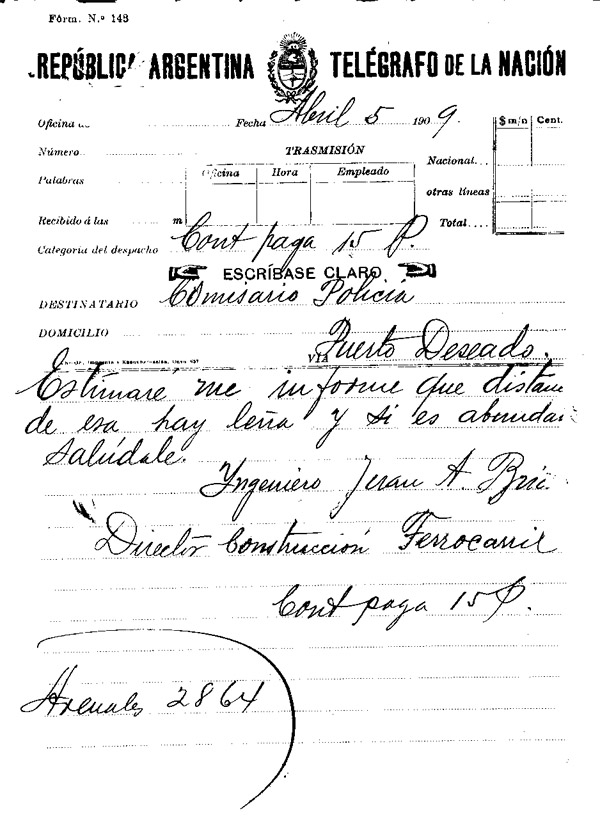 Fórm. N.º 143
REPÚBLICA ARGENTINA TELÉGRAFO DE LA NACIÓN
Oficina de Fecha Abril 5 1909.
$ m/n Cent.
Número TRASMISIÓN
Nacional
Palabras Oficina Hora Empleado
otras líneas
Recibido á las m
Total
Categoría del despacho Cont paga 15 P.
ESCRÍBASE CLARO
DESTINATARIO Comisario Policía
DOMICILIO
VIA Puerto Deseado.
Estimaré me informe que distan
de esa hay leña y si es abunda
Salúdale.
Ingeniero Juan A. Bric.
Director Construcción Ferrocarril
Cont paga 15 P.
Arenales 2864